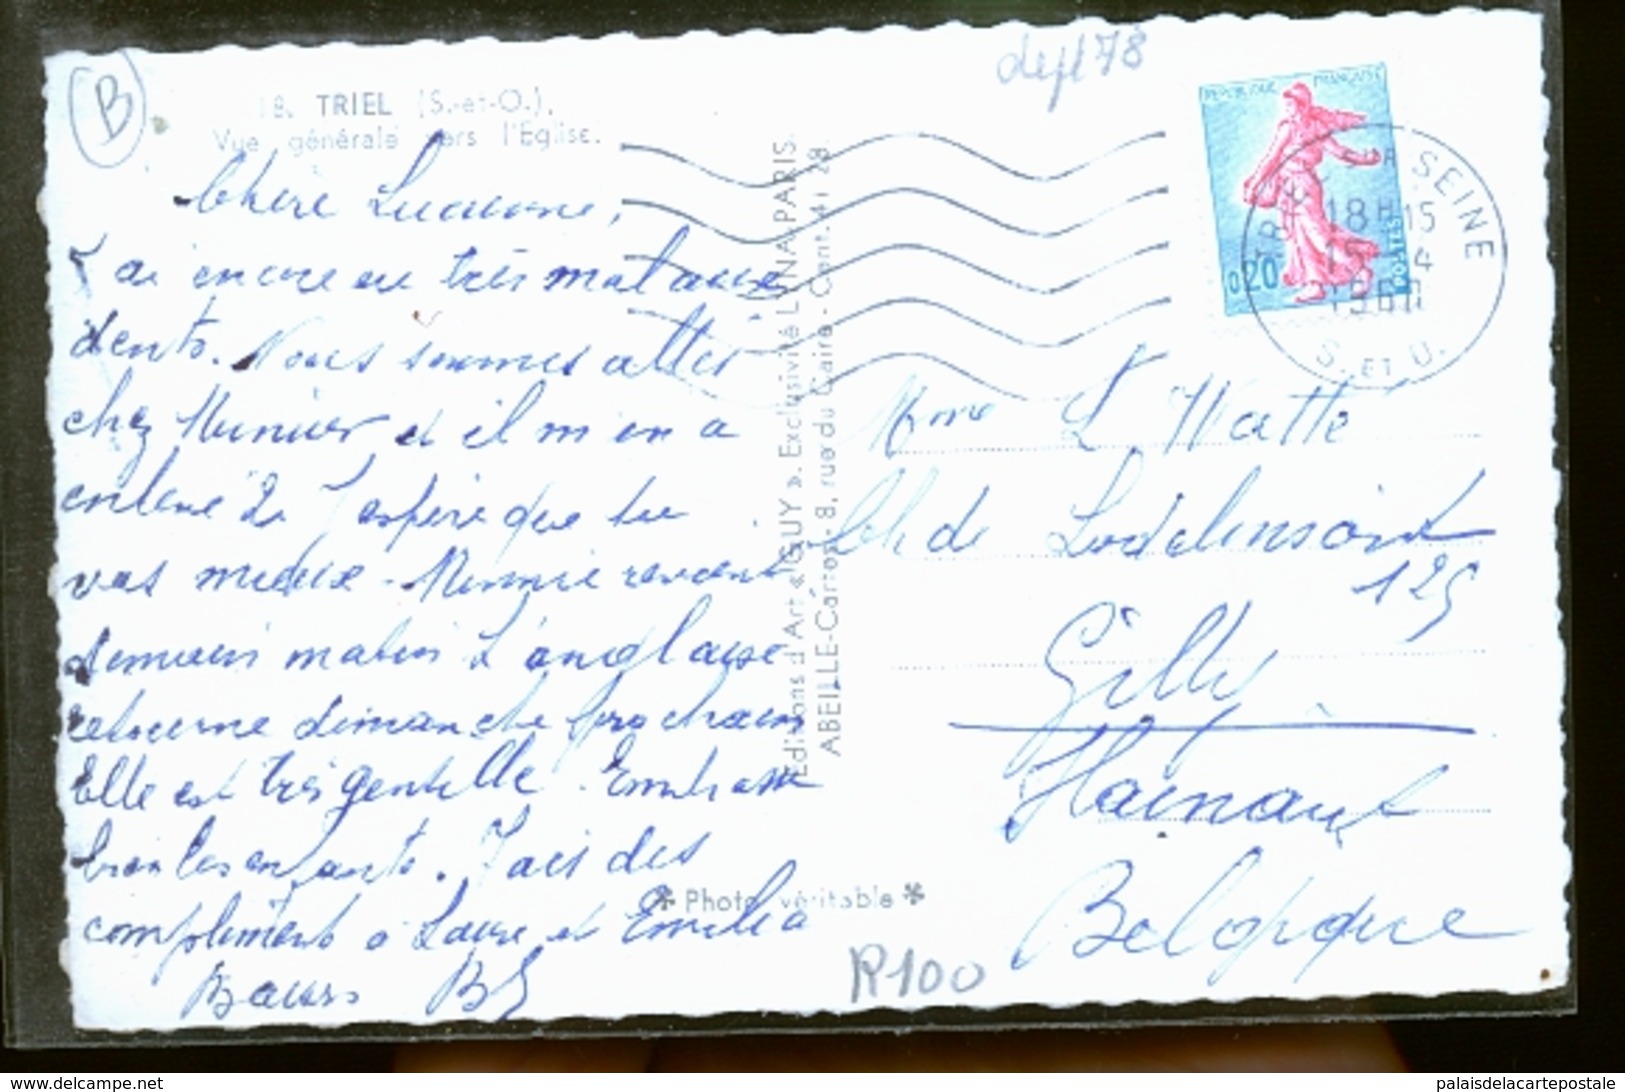 B
dept 78
18. TRIEL (S.-et-O.).
Vue générale vers l'Eglise.
REPUBLIQUE FRANÇAISE
0,20
POSTES
TRIEL SUR SEINE
18H15
15 4
1961
S. ET O.
Chère Lucienne,
J ai encore eu très mal aux
dents. Nous sommes allés
chez Munier et il m en a
enlevé 2. J espère que tu
vas mieux. Minnie revient
demain matin L'anglaise
retourne dimanche prochain
Elle est très gentille. Embrasse
bien les enfants. Fais des
compliments à Laure et Emilia
Baisers
Editions d'Art « GUY ». Exclusivité LUNA-PARIS.
ABEILLE-Cartes 8, rue du Caire - Cent. 41 28
* Photo véritable *
R100
Mme L Watte
Ch de Lodelinsart
125
Gilly
Hainaut
Belgique
www.delcampe.net
palaisdelacartepostale